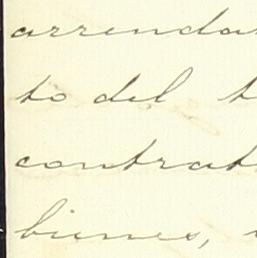 arrenda
to del t
contrat
bienes,